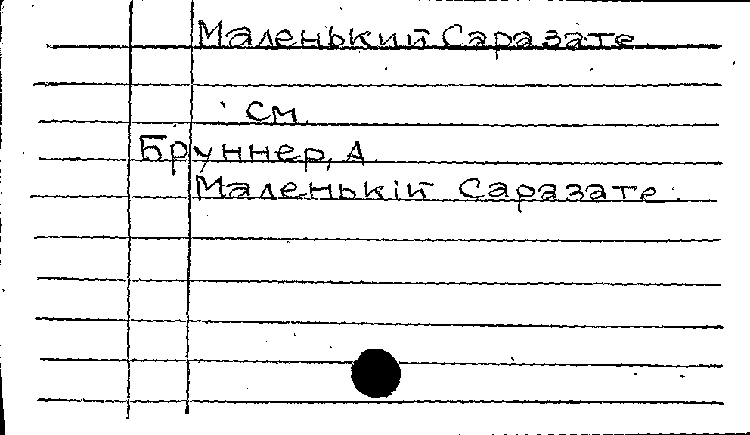 Маленький Саразате
см.
Бруннер, А
Маленькій Саразате.